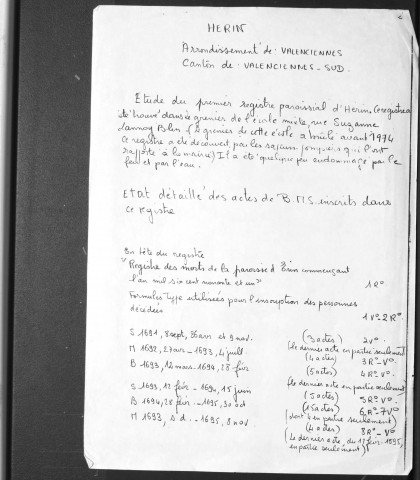 HERIN
Arrondissement de : VALENCIENNES
Canton de : VALENCIENNES-SUD.
Etude du premier registre paroissial d'Herin (ce registre a
été trouvé dans le grenier de l'école mixte, rue Suzanne
Lannoy Blin. (le grenier de cette école a brulé avant 1974
ce registre a été découvert par les sapeurs pompiers qui l'ont
rapporté à la mairie) Il a été quelque peu endommagé par le
feu et par l'eau.
Etat détaillé des actes de B.M.S. inscrits dans
ce registre
En tête du registre
"Registre des morts de la paroisse d'Erin commençant
l'an mil six cent nonante et un" 1 R°
Formules type utilisées pour l'inscription des personnes
décédées 1 V° 2 R°
S 1691, 8 sept, 26 avr et 9 nov. (3 actes) 2 V°
(le dernier acte en partie seulement)
M 1692, 27 avr - 1693, 4 juill (4 actes) 3 R° V°
B 1693, 12 mars - 1694, 28 févr (5 actes) 4 R° V°
(le dernier acte en partie seulement)
S 1693, 12 févr - 1694, 15 juin (5 actes) 5 R° V°
B 1694, 28 févr. - 1695, 30 oct (15 actes) 6 R° - 7 V°
(dont 4 en partie seulement)
M 1693, s.d. - 1695, 8 nov (4 actes) 8 R° - V°
(le dernier acte, du 17 févr. 1695,
en partie seulement)